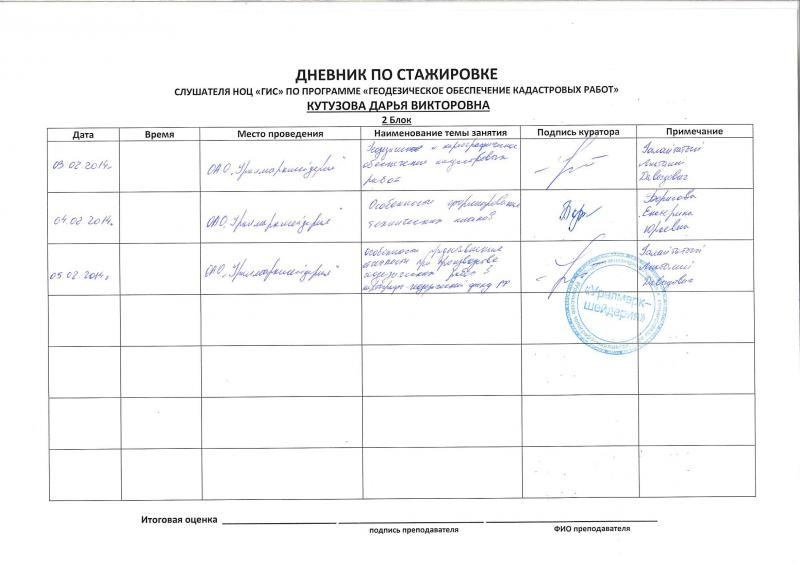 ДНЕВНИК ПО СТАЖИРОВКЕ
СЛУШАТЕЛЯ НОЦ «ГИС» ПО ПРОГРАММЕ «ГЕОДЕЗИЧЕСКОЕ ОБЕСПЕЧЕНИЕ КАДАСТРОВЫХ РАБОТ»
КУТУЗОВА ДАРЬЯ ВИКТОРОВНА
2 Блок
Дата Время Место проведения Наименование темы занятия Подпись куратора Примечание
03.02.2014г.
ОАО „Уралмаркшейдерия"
Геодезическое и картографическое
обеспечение кадастровых
работ
Анатолий
Давидович
04.02.2014г.
ОАО „Уралмаркшейдерия"
Особенности формирования
технических планов
Борисова
Юрьевна
05.02.2014г.
ОАО „Уралмаркшейдерия"
Особенности предъявления
отчетности при производстве
геодезических работ в
картографо-геодезический фонд РФ
Анатолий
Давидович
«Уралмарк-
шейдерия»
Итоговая оценка
подпись преподавателя ФИО преподавателя